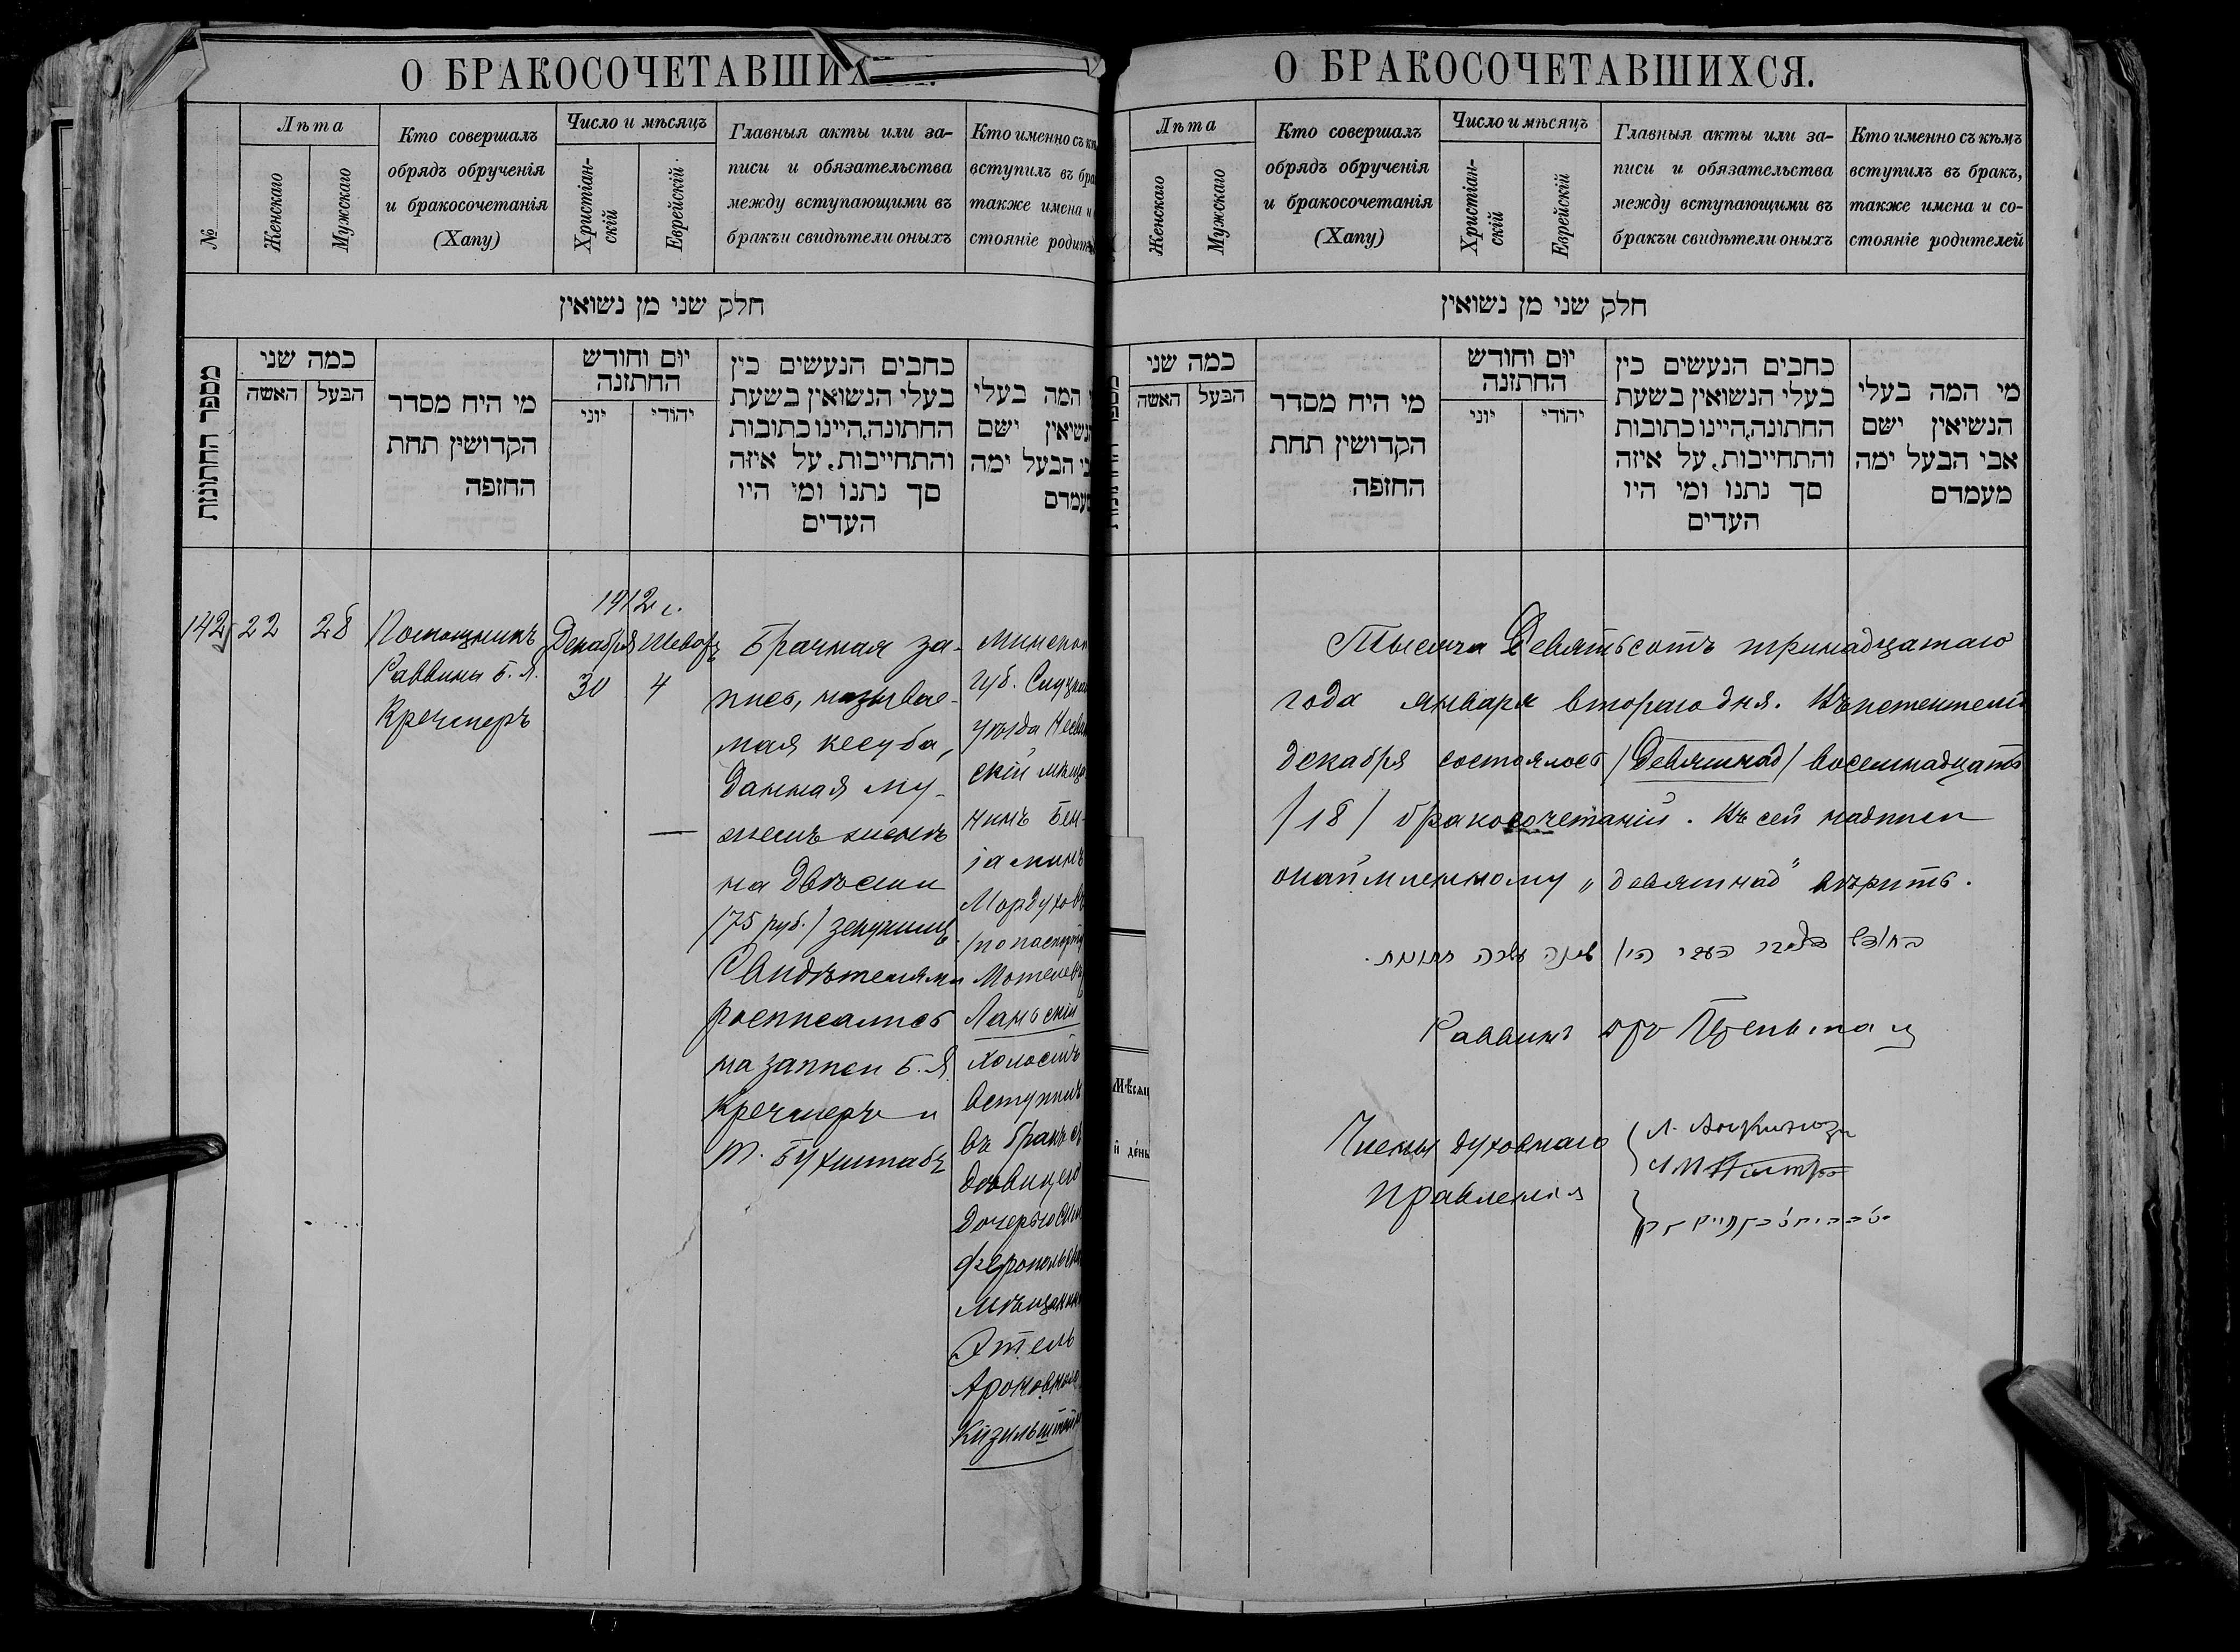 О БРАКОСОЧЕТАВШИХ
№
Лѣта
Женскаго
Мужскаго
Кто совершалъ
обрядъ обрученія
и бракосочетанія
(Хапу)
Число и мѣсяцъ
Христіан-
скій
Еврейскій.
Главныя акты или за-
писи и обязательства
между вступающими въ
бракъи свидѣтели оныхъ
Кто именно съ
вступилъ въ
также имена
стояніе
חלק שני מן נשואין
מספר החתונות
כמה שני
האשה
הבעל
מי היח מסדר
הקדושין תחת
החופה
יום וחודש
החתונה
יוני
יהודי
כחבים הנעשים כין
בעלי הנשואין בשעת
החתונה,היינו כתובות
והתחייבות, על איזה
סך נתנו ומי היו
העדים
המה בעלי
ישם
הבעל ימה
142
22
28
Помощникъ
Раввина Б. Я.
Кречмеръ
1912 г.
Декабря
30
Шеватъ
4
Брачная за-
пись, называе-
мая кесуба,
данная му-
жемъ женѣ
на двѣсти
/75 руб./
Свидѣтелями
росписались
на записи Б. Я.
Кречмеръ и
Т. Бухштабъ
Минской
губ. Слуцкаго
уѣзда
скій
нинъ Бен-
іаминъ
Мордуховъ
/по паспорту
Мотелевъ
Ланьскій
холостъ
вступилъ
въ бракъ съ
дѣвицею
дочерью
Этель
Ароновною
О БРАКОСОЧЕТАВШИХСЯ.
Лѣта
Женскаго
Мужскаго
Кто совершалъ
обрядъ обрученія
и бракосочетанія
(Хапу)
Число и мѣсяцъ
Христіан-
скій
Еврейскій
Главныя акты или за-
писи и обязательства
между вступающими въ
бракъи свидѣтели оныхъ
Кто именно съ кѣмъ
вступилъ въ бракъ,
также имена и со-
стояніе родителей
חלק שני מן נשואין
כמה שני
האשה
הבעל
מי היח מסדר
הקדושין תחת
החופה
יום וחודש
החתונה
יוני
יהודי
כחבים הנעשים כין
בעלי הנשואין בשעת
החתונה,היינו כתובות
והתחייבות, על איזה
סך נתנו ומי היו
העדים
מי המה בעלי
הנשיאין ישם
אבי הבעל ימה
מעמדם
Тысяча девятьсотъ тринадцатаго
года января второго дня. Въ
декабря состоялось /девятнад/ восемнадцать
/18/ бракосочетаній. Въ сей надписи
„девятнад“ вѣрить.
שמנה עשרה חתונות.
Раввинъ
Члены духовнаго
правленія
Мѣсяц
й день